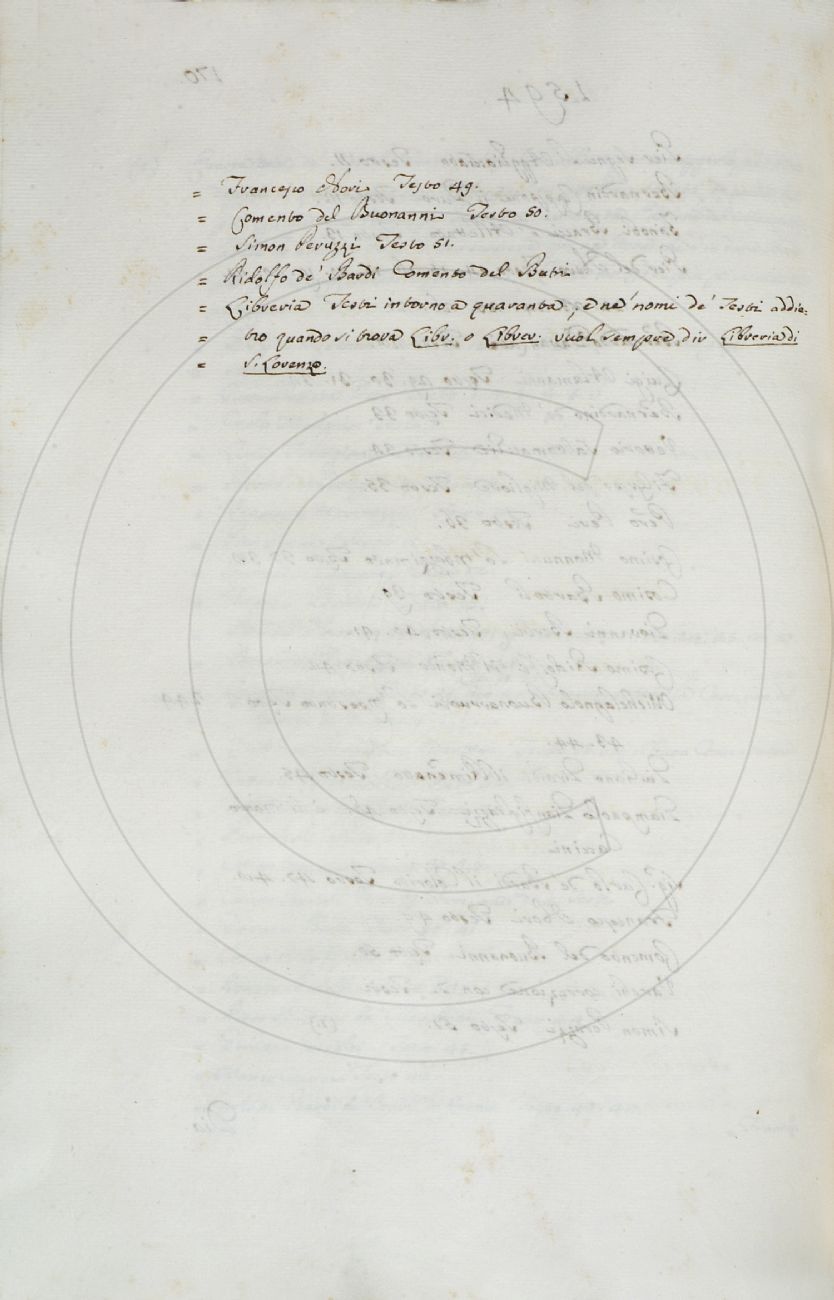 = Francesco Nori Testo 49.
= Comento del Buonanni Testo 50.
= Simon Peruzzi Testo 51.
= Ridolfo de' Bardi Comento del Buti
= Libreria Testi intorno a quaranta, e ne' nomi de' Testi addie:
= tro quando si trova Libr: o Librer: vuol sempre dir Libreria di
= S. Lorenzo.